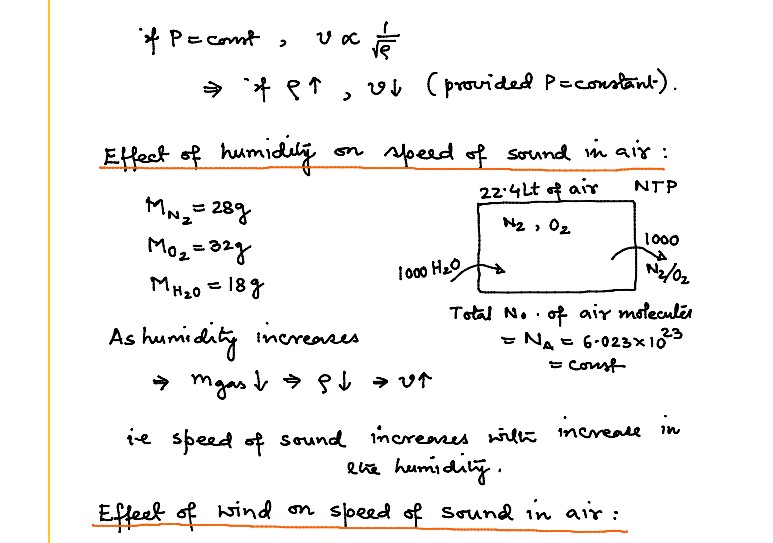 if P = const , v ∝ 1/√ρ
⇒ if ρ↑ , v↓ (provided P = constant).
Effect of humidity on speed of sound in air :
M_N₂ = 28g
M_O₂ = 32g
M_H₂O = 18g
22.4Lt of air NTP
N₂ , O₂
1000 H₂O
1000
N₂/O₂
Total No. of air molecules
= N_A = 6.023×10²³
= const
As humidity increases
⇒ m gas ↓ ⇒ ρ↓ → v↑
i.e speed of sound increases with increase in
the humidity.
Effect of wind on speed of sound in air :